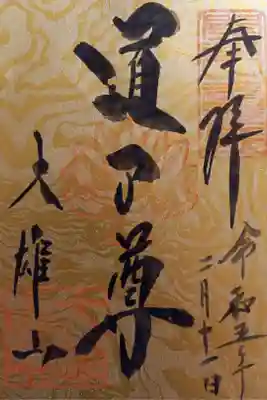 奉拝
令和五年
二月十一日
道了尊
大雄山